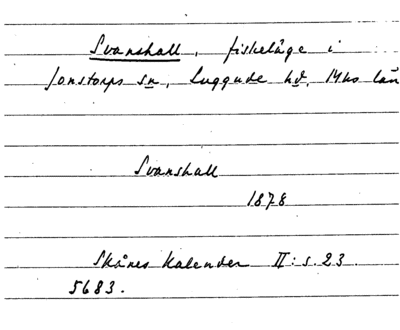 Svanshall, fiskeläge i
Jonstorps sn, Luggude hd, Mhs län
Svanshall
1878
Skånes Kalender II: s. 23.
5683.